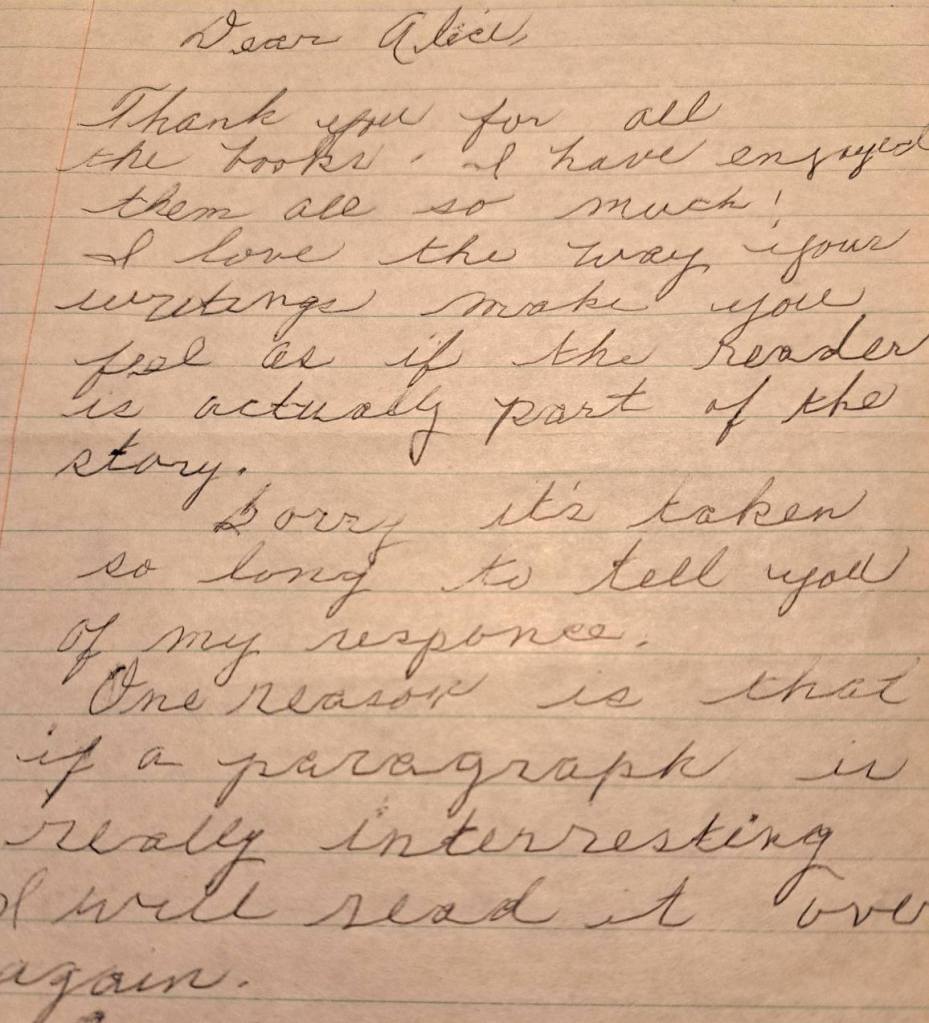 Dear Alice,
Thank you for all
the books. I have enjoyed
them all so much!
I love the way your
writings make you
feel as if the reader
is actually part of the
story.
Sorry it's taken
so long to tell you
of my responce.
One reason is that
if a paragraph is
really interresting
I will read it over
again.